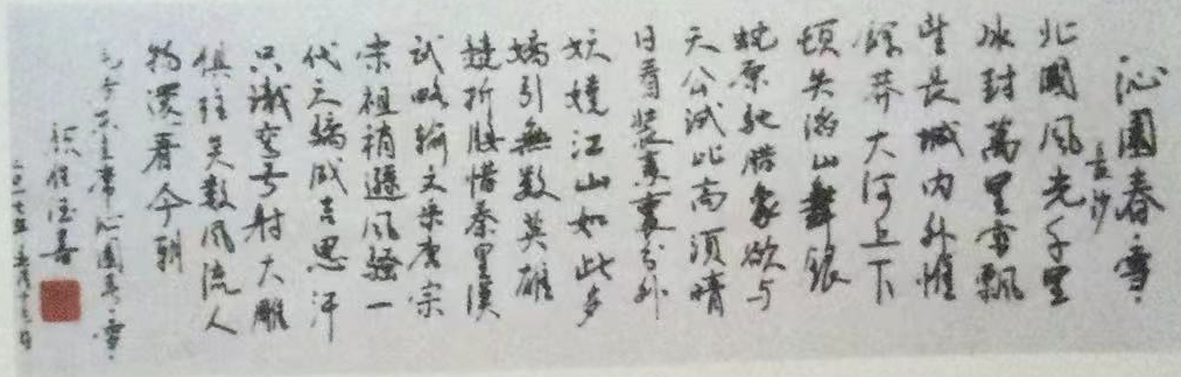 沁園春·雪·
長沙
北國風光千里
冰封萬里雪飄
望長城内外惟
餘莽大河上下
頓失滔山舞銀
蛇原馳腊象欲与
天公試比高須晴
日看裝素裹分外
妖嬈江山如此多
嬌引無数英雄
競折腰惜秦皇漢
武略輸文采唐宗
宋祖稍遜風騷一
代天驕成吉思汗
只識弯弓射大雕
俱往矣数風流人
物還看今朝
主席沁園春·雪·
書